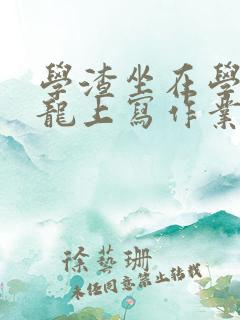 學渣坐在學
龍上寫作業
徐藝珊
未经同意禁止转载